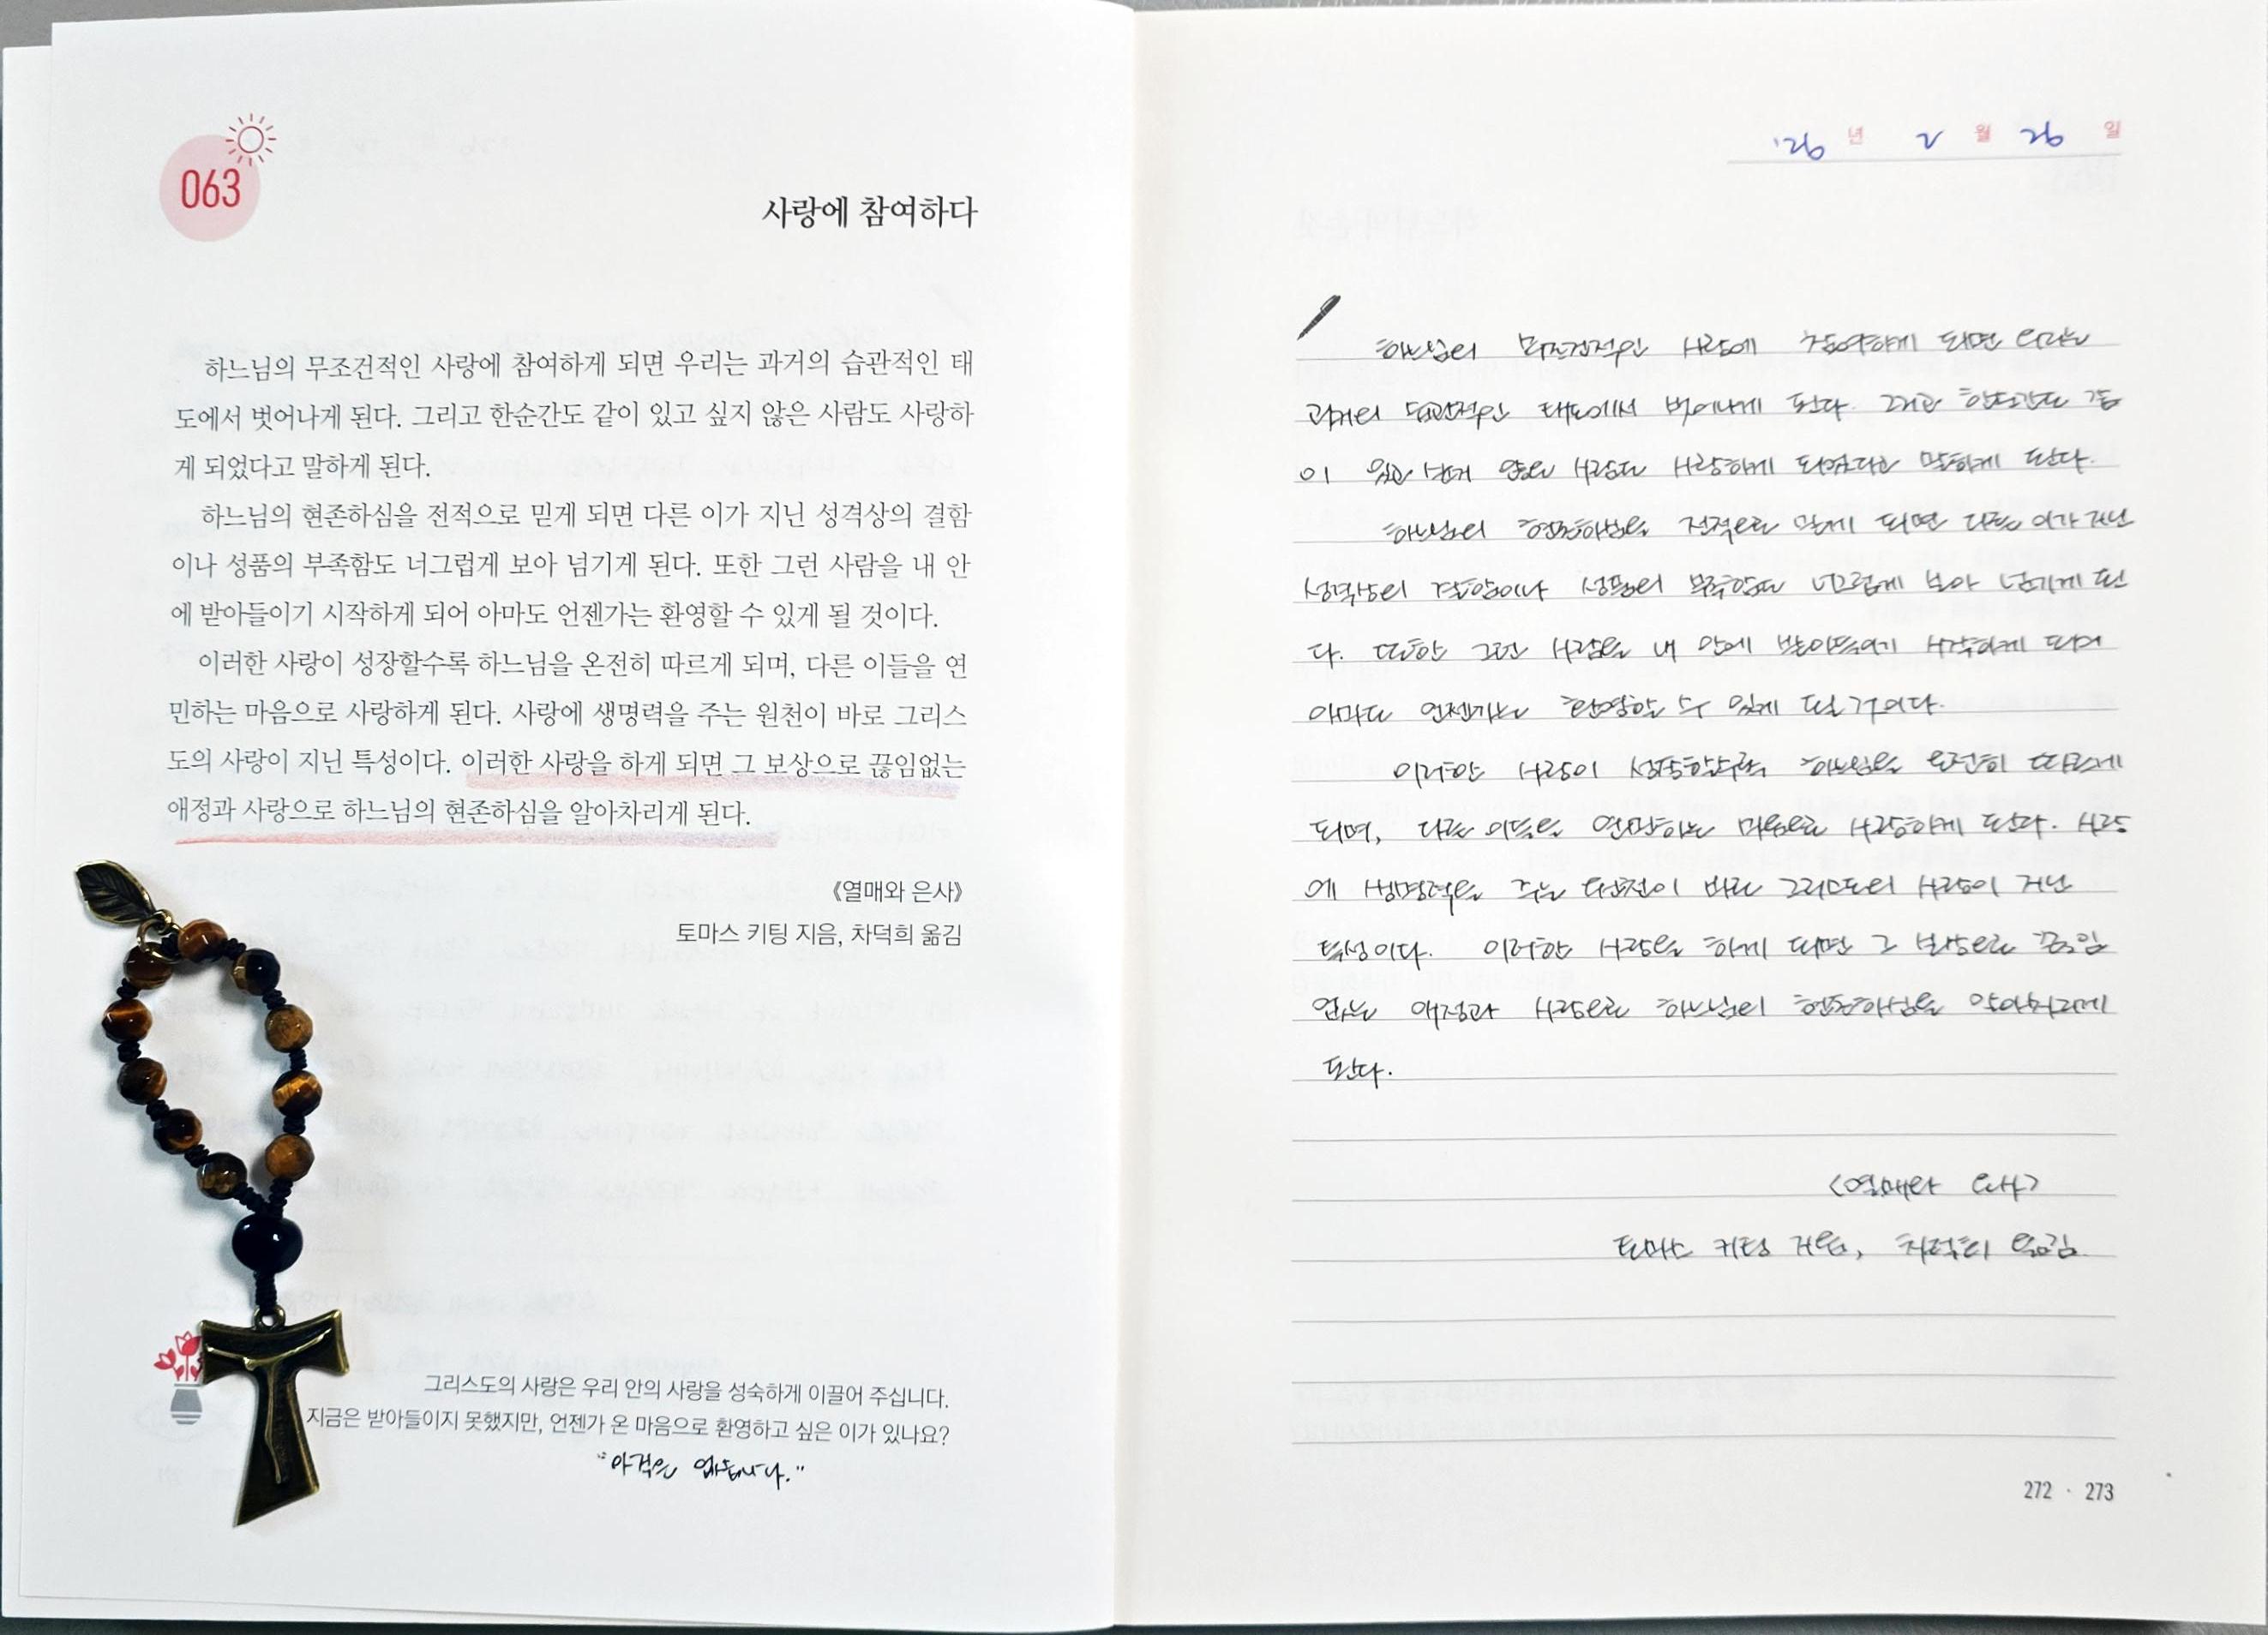 063
사랑에 참여하다
하느님의 무조건적인 사랑에 참여하게 되면 우리는 과거의 습관적인 태
도에서 벗어나게 된다. 그리고 한순간도 같이 있고 싶지 않은 사람도 사랑하
게 되었다고 말하게 된다.
하느님의 현존하심을 전적으로 믿게 되면 다른 이가 지닌 성격상의 결함
이나 성품의 부족함도 너그럽게 보아 넘기게 된다. 또한 그런 사람을 내 안
에 받아들이기 시작하게 되어 아마도 언젠가는 환영할 수 있게 될 것이다.
이러한 사랑이 성장할수록 하느님을 온전히 따르게 되며, 다른 이들을 연
민하는 마음으로 사랑하게 된다. 사랑에 생명력을 주는 원천이 바로 그리스
도의 사랑이 지닌 특성이다. 이러한 사랑을 하게 되면 그 보상으로 끊임없는
애정과 사랑으로 하느님의 현존하심을 알아차리게 된다.
《열매와 은사》
토마스 키팅 지음, 차덕희 옮김
그리스도의 사랑은 우리 안의 사랑을 성숙하게 이끌어 주십니다.
지금은 받아들이지 못했지만, 언젠가 온 마음으로 환영하고 싶은 이가 있나요?
"아직은 없습니다."
'26 년 2 월 26 일
하느님의 무조건적인 사랑에 참여하게 되면 우리는
과거의 습관적인 태도에서 벗어나게 된다. 그리고 한순간도 같
이 있고 싶지 않은 사람도 사랑하게 되었다고 말하게 된다.
하느님의 현존하심을 전적으로 믿게 되면 다른 이가 지닌
성격상의 결함이나 성품의 부족함도 너그럽게 보아 넘기게 된
다. 또한 그런 사람을 내 안에 받아들이기 시작하게 되어
아마도 언젠가는 환영할 수 있게 될 거이다.
이러한 사랑이 성장할수록 하느님을 온전히 따르게
되며, 다른 이들을 연민하는 마음으로 사랑하게 된다. 사랑
에 생명력을 주는 원천이 바로 그리스도의 사랑이 지닌
특성이다. 이러한 사랑을 하게 되면 그 보상으로 끊임
없는 애정과 사랑으로 하느님의 현존하심을 알아차리게
된다.
<열매와 은사>
토마스 키팅 지음, 차덕희 옮김
272 · 273